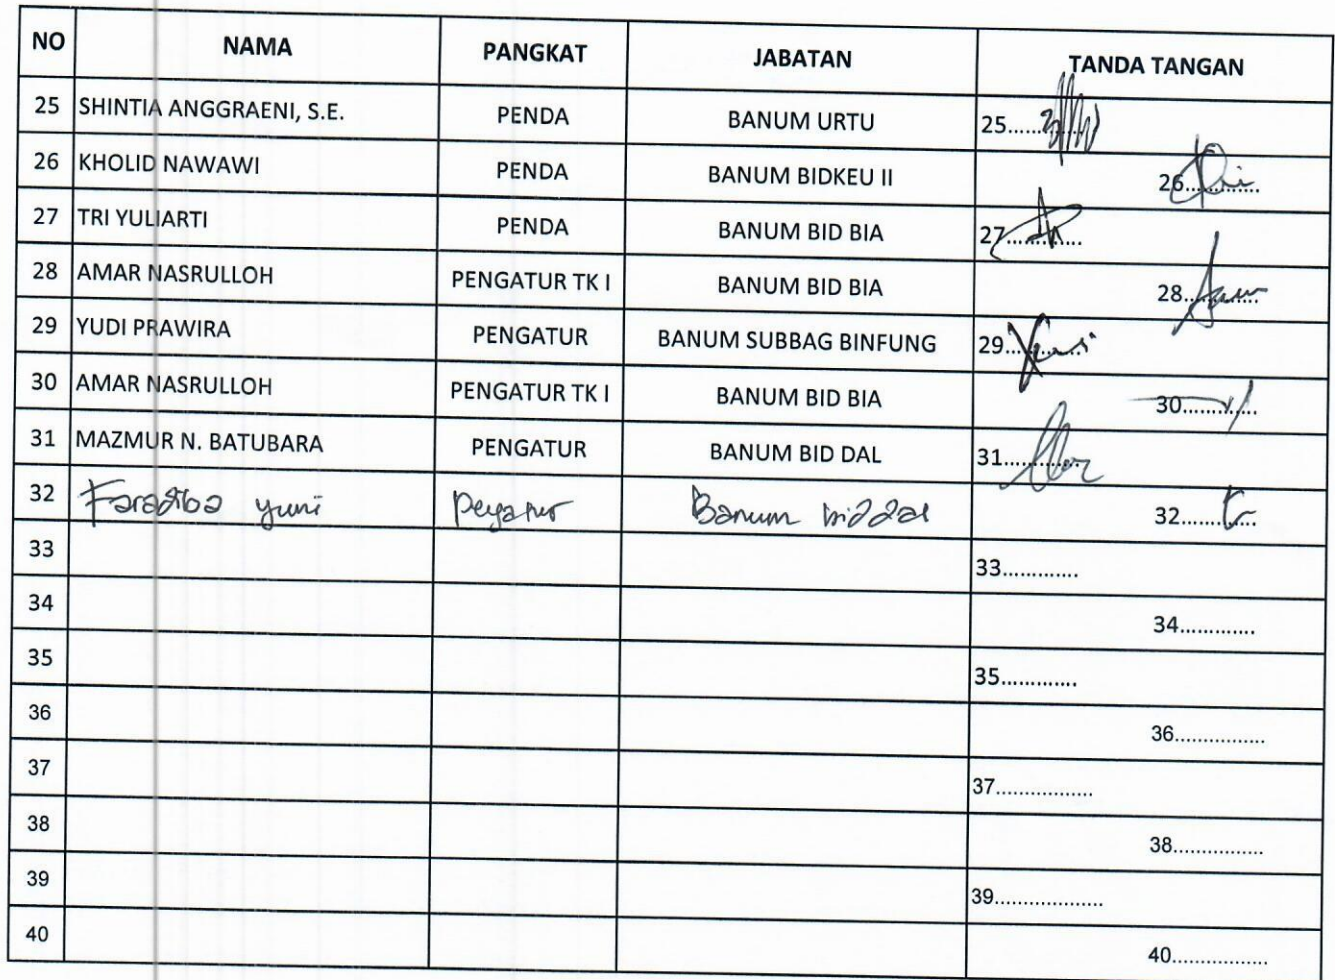 NO NAMA PANGKAT JABATAN TANDA TANGAN
25 SHINTIA ANGGRAENI, S.E. PENDA BANUM URTU 25......
26 KHOLID NAWAWI PENDA BANUM BIDKEU II 26............
27 TRI YULIARTI PENDA BANUM BID BIA 27............
28 AMAR NASRULLOH PENGATUR TK I BANUM BID BIA 28............
29 YUDI PRAWIRA PENGATUR BANUM SUBBAG BINFUNG 29............
30 AMAR NASRULLOH PENGATUR TK I BANUM BID BIA 30............
31 MAZMUR N. BATUBARA PENGATUR BANUM BID DAL 31............
32 Faradiba yuni Pegatur Banum biddal 32............
33 33.............
34 34.............
35 35.............
36 36................
37 37.................
38 38................
39 39...................
40 40.................